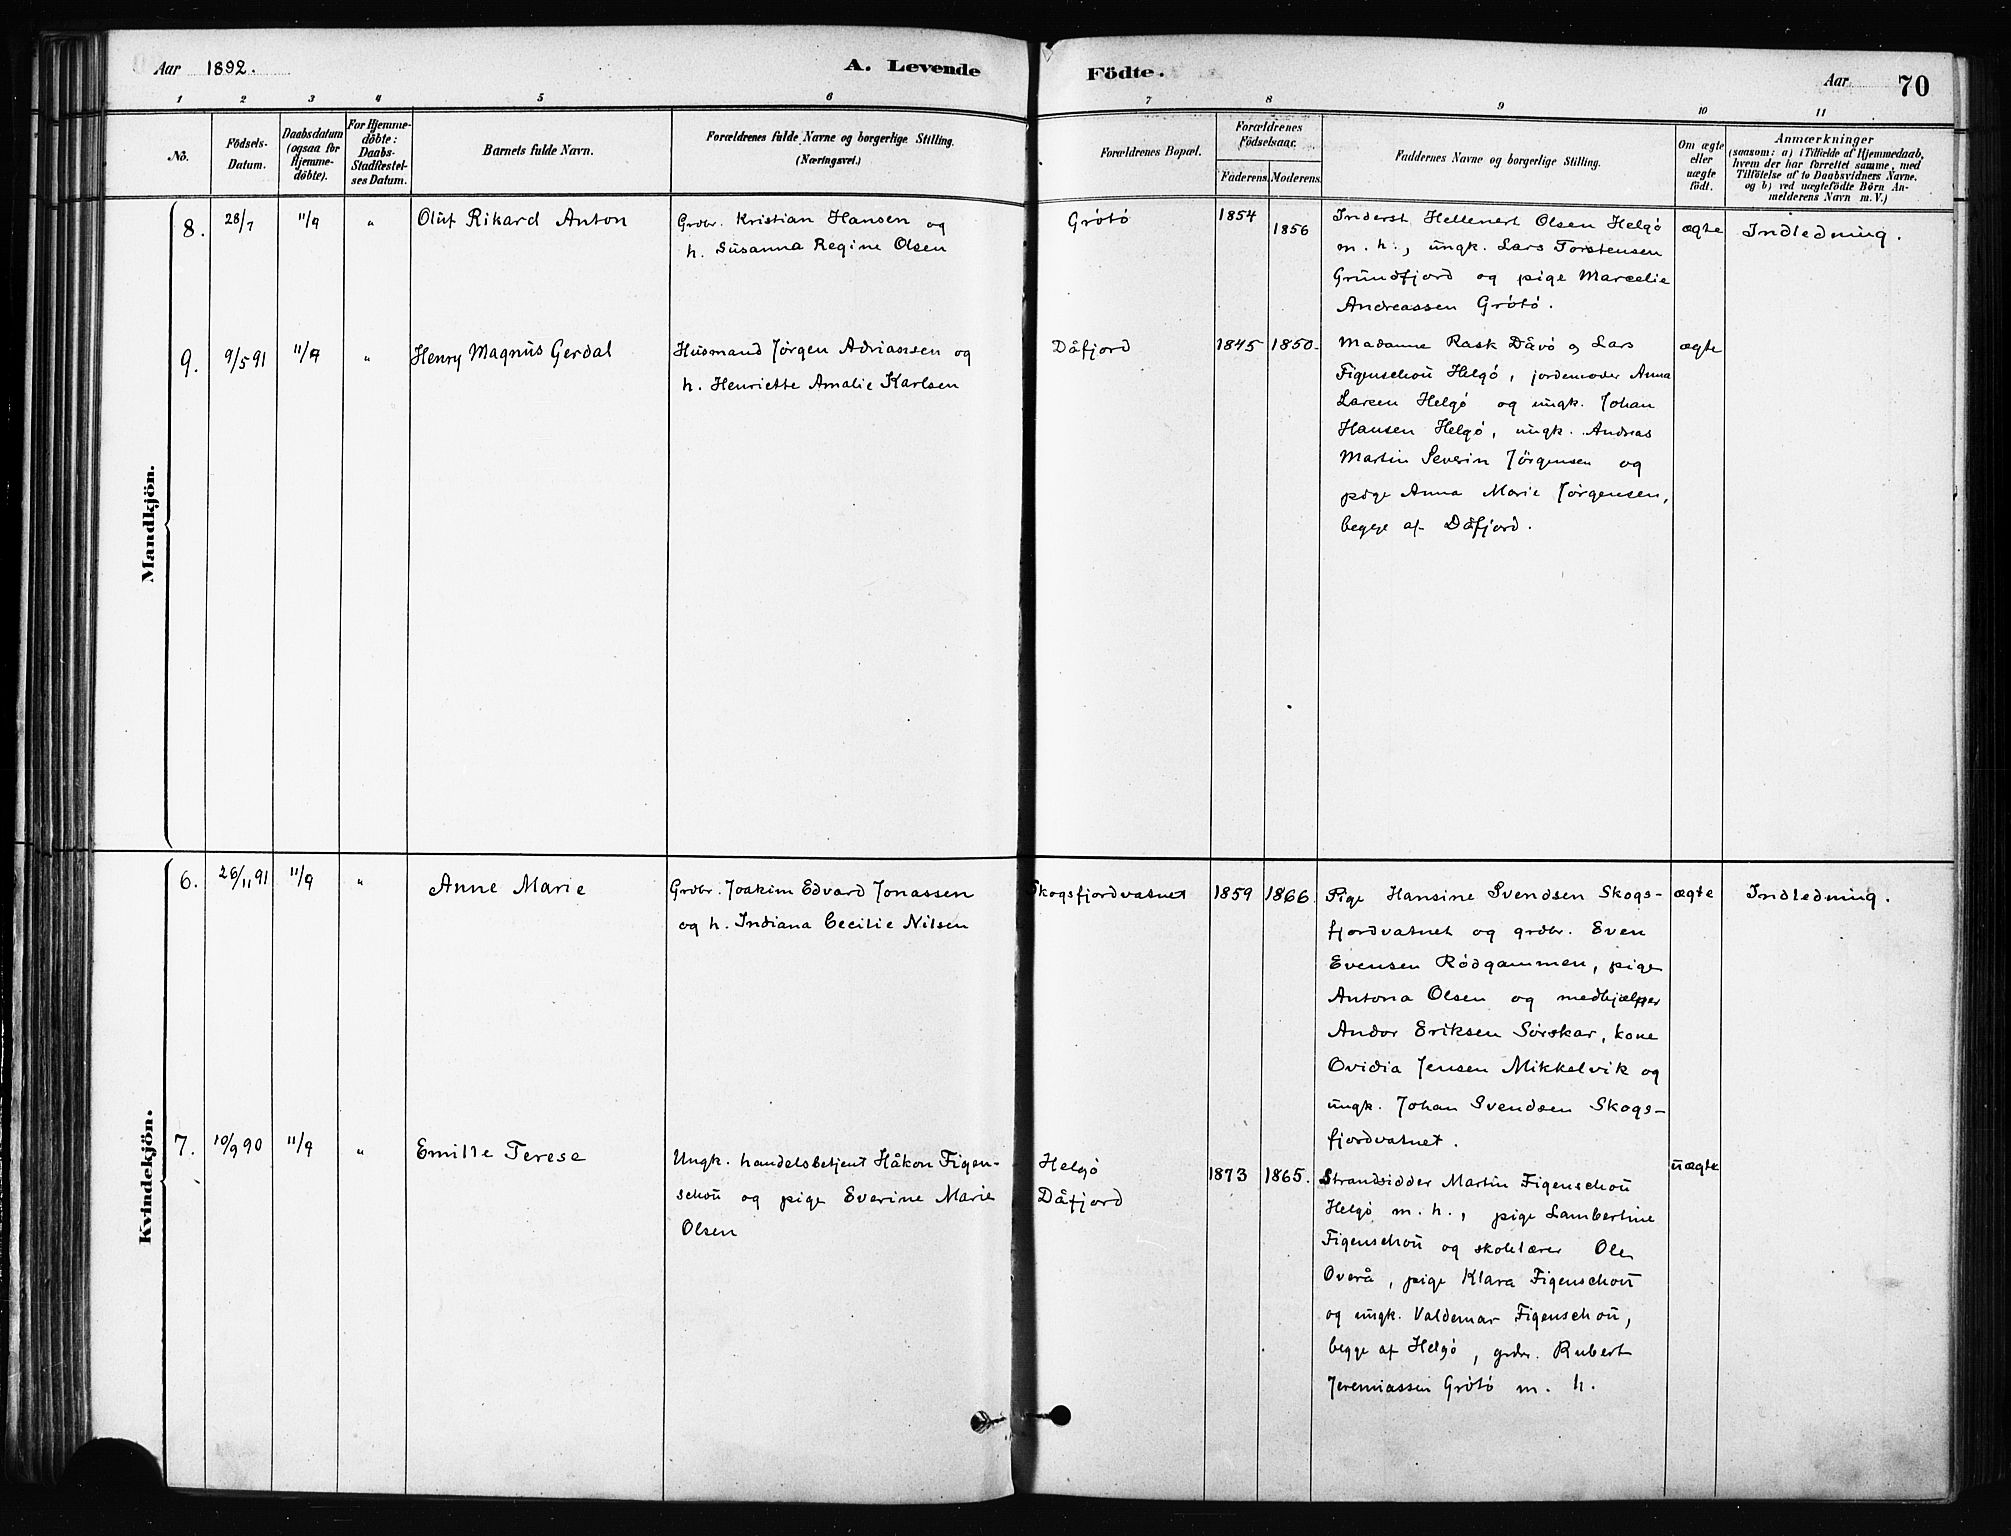 Aar 1892. A. Levende Födte. Aar 70
1 2 3 4 5 6 7 8 9 10 11
No.
Födsels-
Datum.
Daabsdatum
(ogsaa for
Hjemme-
döbte).
For Hjemme-
döbte:
Daabs-
Stadfæstel-
ses Datum.
Barnets fulde Navn.
Forældrenes fulde Navne og borgerlige Stilling.
(Næringsvei.)
Forældrenes Bopæl.
Forældrenes
Födselsaar.
Faderens. Moderens.
Faddernes Navne og borgerlige Stilling.
Om ægte
eller
uægte
födt.
Anmærkninger
(saasom: a) i Tilfælde af Hjemmedaab,
hvem der har forrettet samme, med
Tilföielse af to Daabsvidners Navne.
og b) ved uægtefödte Börn An-
melderens Navn m. V.)
Mandkjön.
8. 28/7 11/9 " Oluf Rikard Anton
Grdbr. Kristian Hansen og
h. Susanna Regine Olsen
Grötö 1854 1856
Inderst Hellenert Olsen Helgö
m. h., ungk. Lars Torstensen
Grundfjord og pige Marcelie
Andreassen Grötö.
ægte Indledning.
9. 9/5 91 11/9 " Henry Magnus Gerdal
Husmand Jörgen Adriansen og
h. Henriette Amalie Karlsen
Dåfjord 1845 1850.
Madamme Rask Dåvö og Lars
Figenschou Helgö, jordemoder Anna
Larsen Helgö og ungk. Johan
Hansen Helgö, ungk. Andreas
Martin Severin Jörgensen og
pige Anna Marie Jörgensen,
begge af Dåfjord.
ægte
Kvindekjön.
6. 26/11 91 11/9 " Anne Marie
Grdbr. Joakim Edvard Jonassen
og h. Indiana Cecilie Nilsen
Skogsfjordvatnet 1859 1866.
Pige Hansine Svendsen Skogs-
fjordvatnet og grdbr. Even
Evensen Rödgammen, pige
Antona Olsen og medhjælper
Andor Eriksen Sörskar, kone
Ovidia Jensen Mikkelvik og
ungk. Johan Svendsen Skogs-
fjordvatnet.
ægte Indledning.
7. 10/9 90 11/9 " Emilie Terese
Ungk. handelsbetjent Håkon Figen-
schou og pige Everine Marie
Olsen
Helgö
Dåfjord
1873 1865.
Strandsidder Martin Figenschou
Helgö m. h., pige Lambertine
Figenschou og skolelærer Ole
Overå, pige Klara Figenschou
og ungk. Valdemar Figenschou,
begge af Helgö, grdbr. Rubert
Jeremiassen Grötö m. h.
uægte